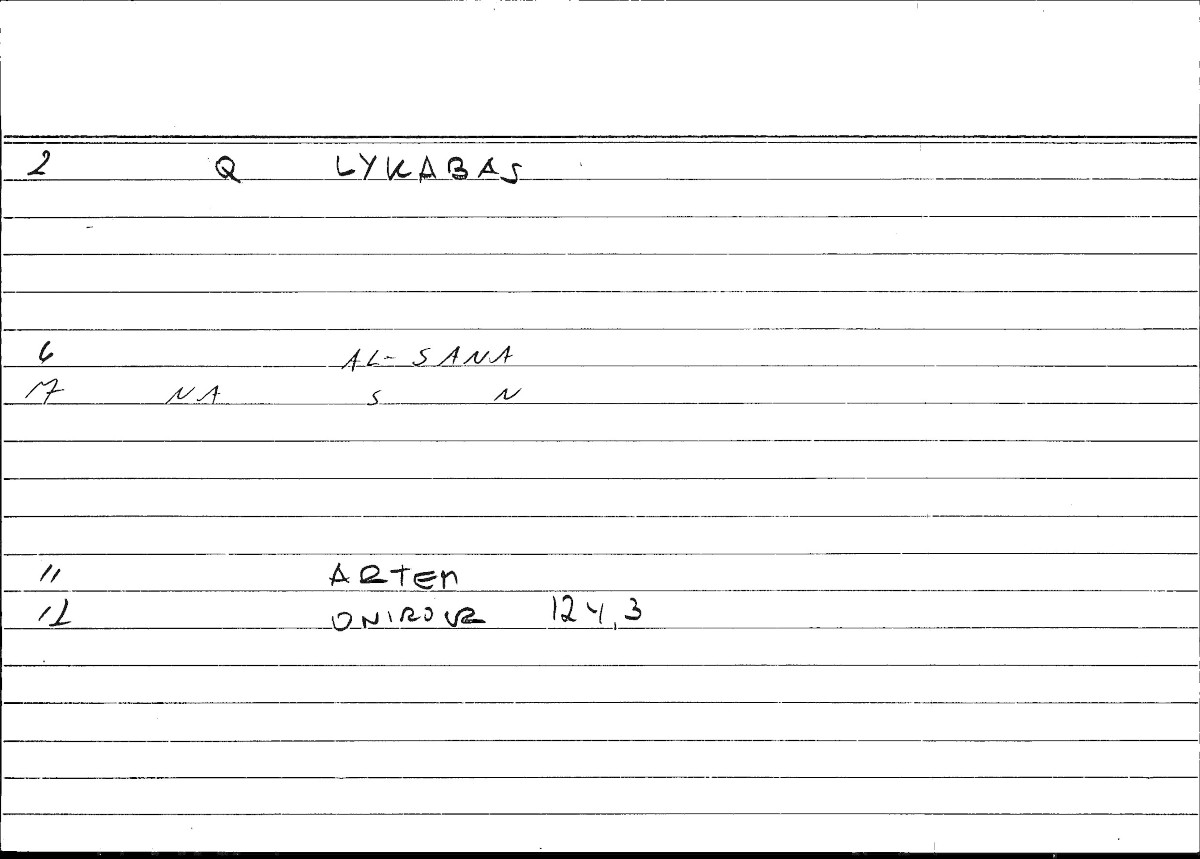 2 Q LYKABAS
6 AL-SANA
17 NA S N
11 ARTEM
12 ONIROUR 124,3